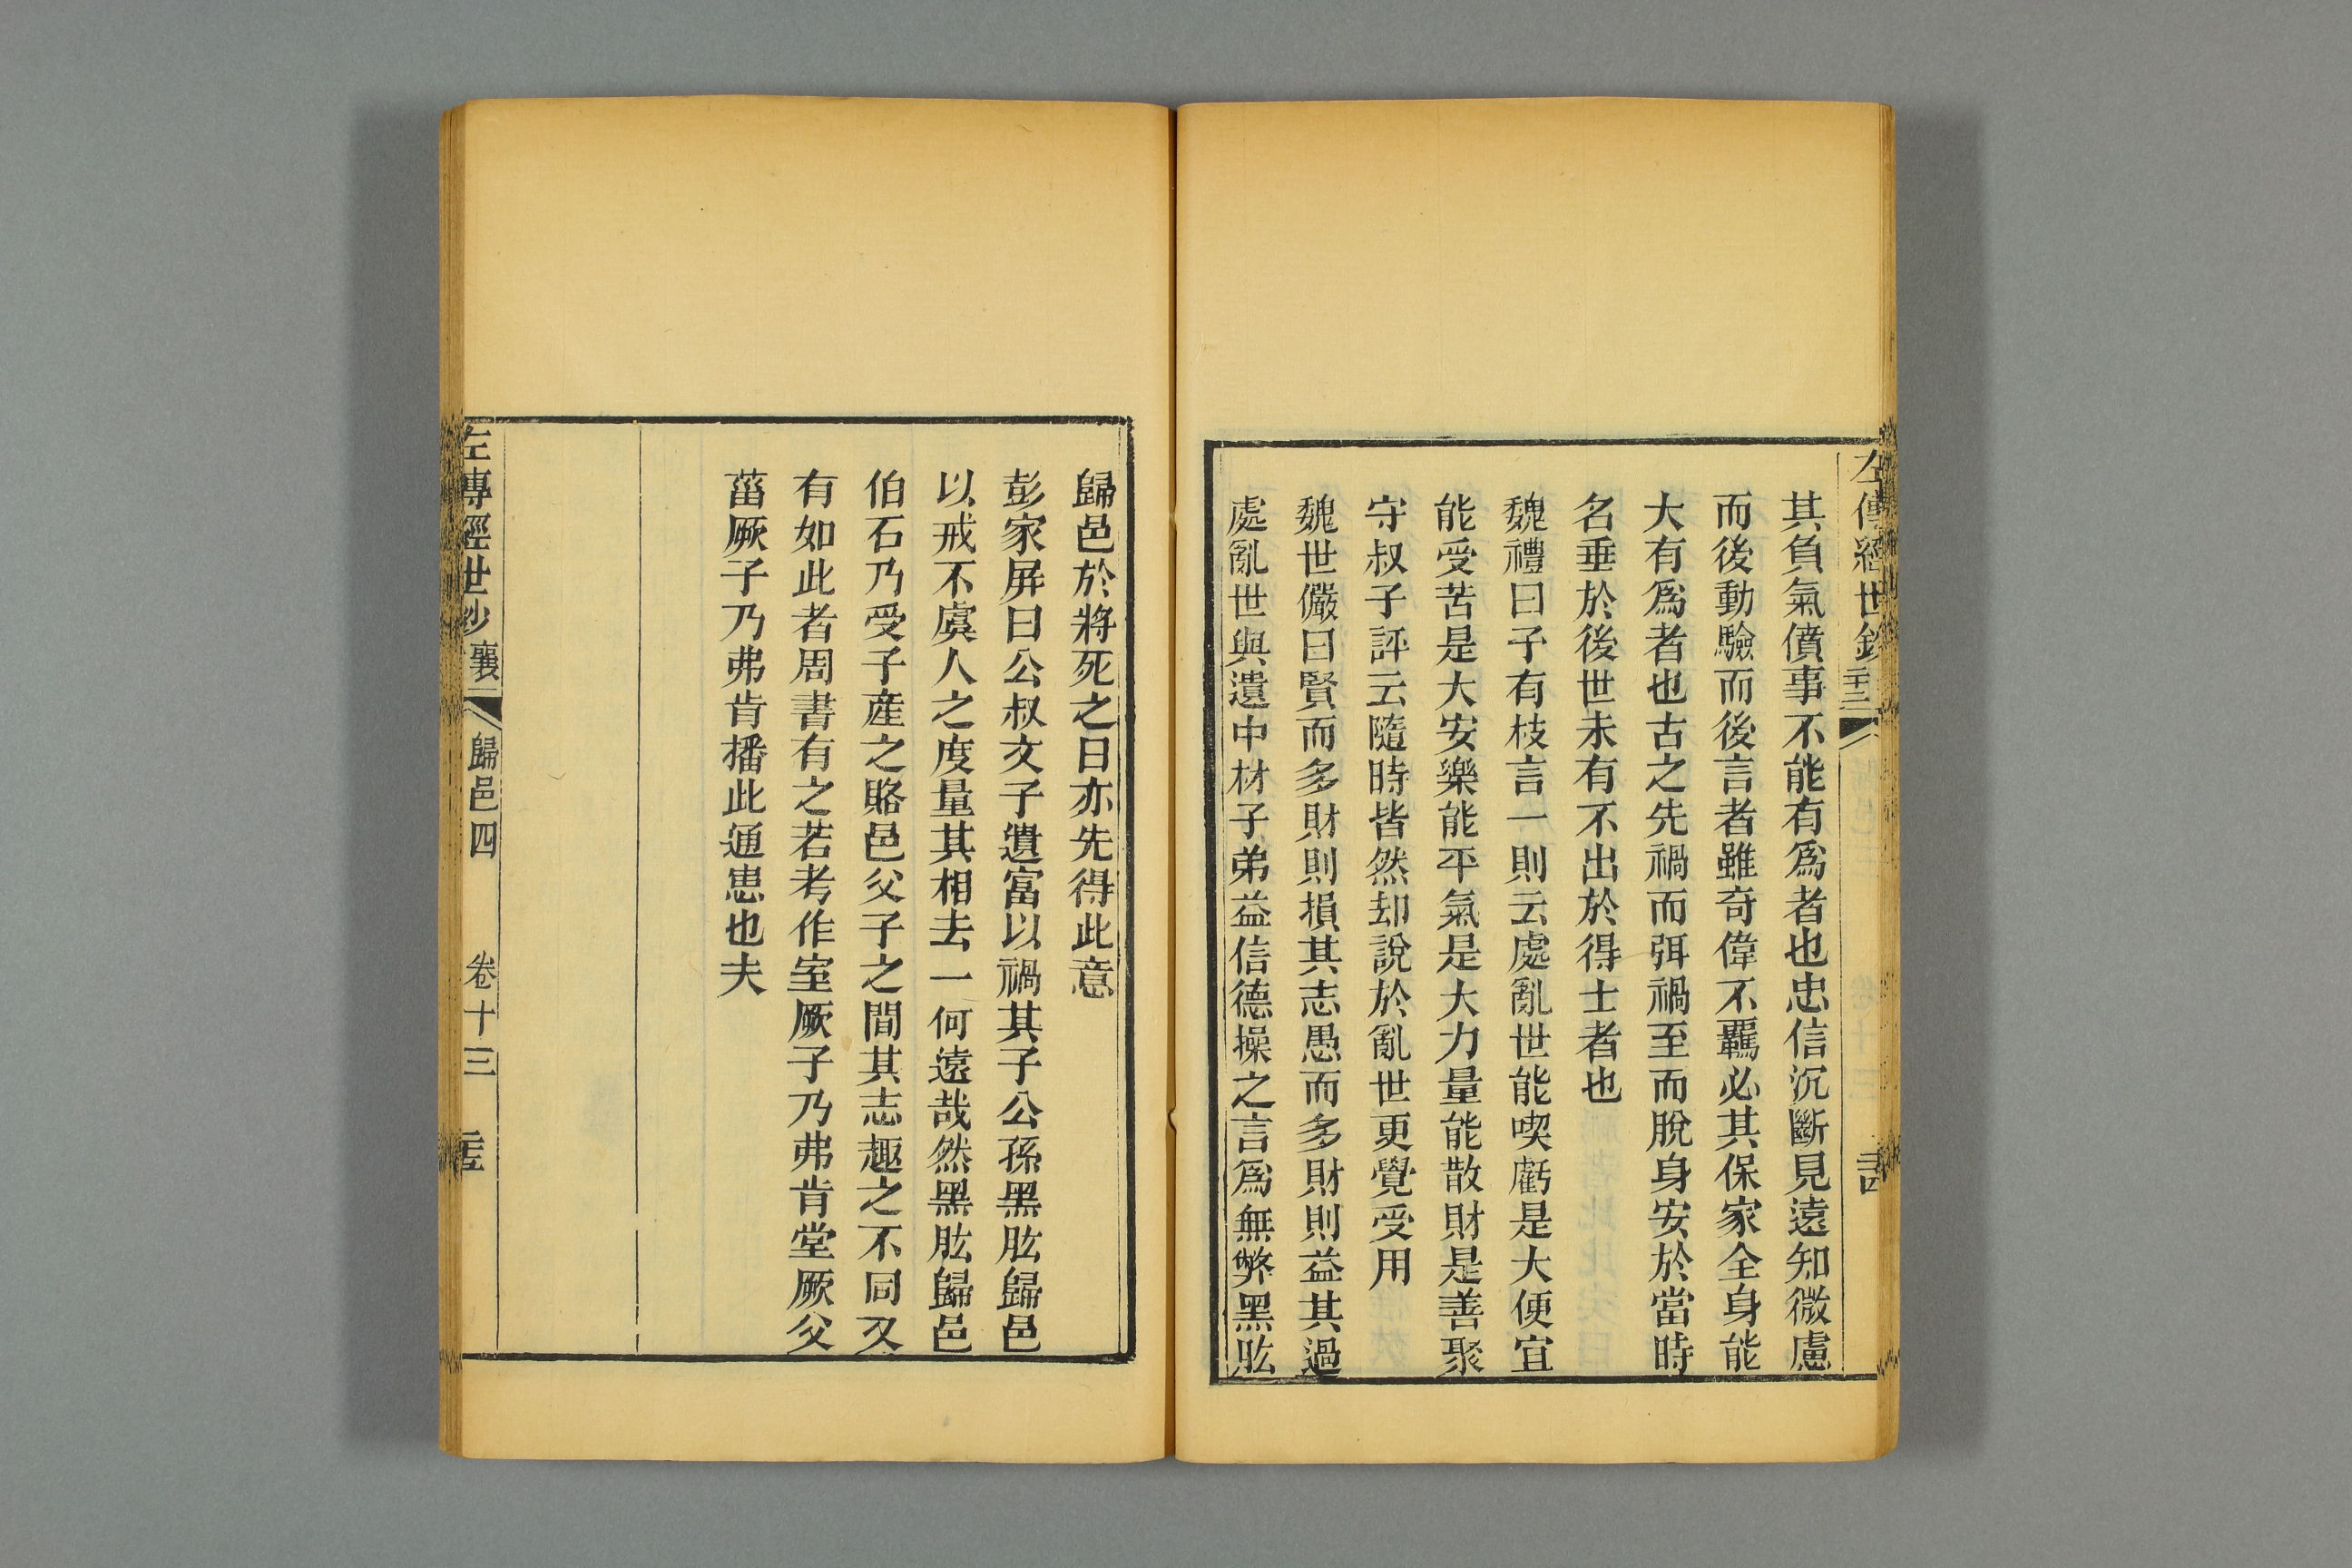 左傳經世鈔
其負氣僨事不能有爲者也忠信沉斷見遠知微慮
而後動驗而後言者雖奇偉不羈必其保家全身能
大有爲者也古之先禍而弭禍至而脫身安於當時
名垂於後世未有不出於得士者也
魏禮曰子有枝言一則云處亂世能喫虧是大便宜
能受苦是大安樂能平氣是大力量能散財是善聚
守叔子評云隨時皆然却說於亂世更覺受用
魏世儼曰賢而多財則損其志愚而多財則益其過
處亂世與遺中材子弟益信德操之言爲無弊黑肱
歸邑於將死之日亦先得此意
彭家屏曰公叔文子遺富以禍其子公孫黑肱歸邑
以戒不虞人之度量其相去一何遠哉然黑肱歸邑
伯石乃受子產之賂邑父子之間其志趣之不同又
有如此者周書有之若考作室厥子乃弗肯堂厥父
菑厥子乃弗肯播此通患也夫
左傳經世鈔 襄 歸邑四 卷十三